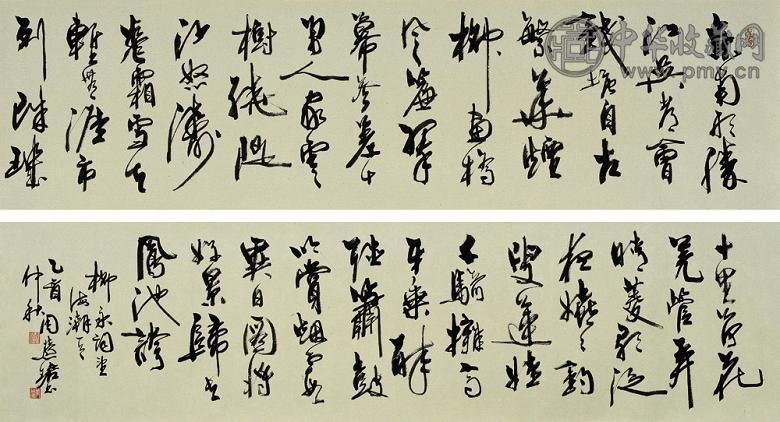 東南形勝
江吳都會
錢塘自古
繁華煙
柳畫橋
風簾翠
幕參差十
万人家雲
樹繞隄
沙怒濤
卷霜雪天
塹無涯市
列珠璣
十里荷花
羌管弄
晴菱歌泛
夜嬉嬉釣
叟蓮娃
千騎擁高
牙乘醉
聽簫鼓
吟賞烟霞
異日圖將
好景歸去
鳳池誇
柳永詞望
海潮
乙酉周慧珺
仲秋
中华收藏网